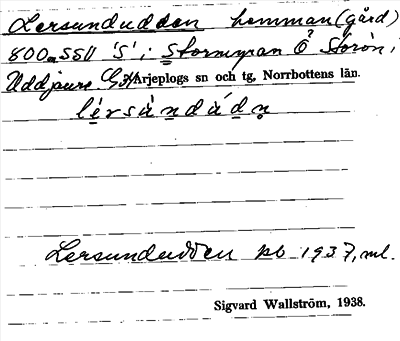 Lersundudden hemman (gård)
800 m SSV 'S' i Stormyran Ö Storön i
Uddjaure. Arjeplogs sn och tg, Norrbottens län.
lérsùndúdn̥
Lersundudden kb 1937, ml.
Sigvard Wallström, 1938.